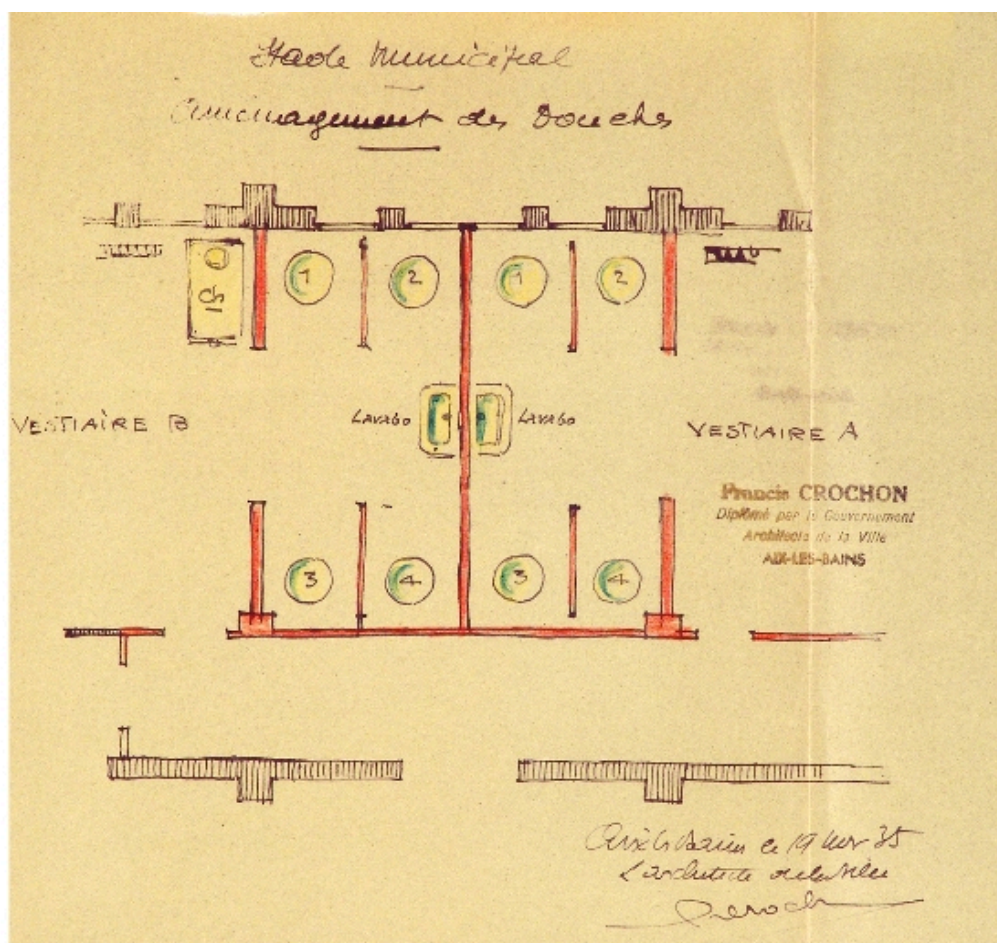 Stade Municipal
Aménagement des Douches
1 2 1 2
Ch
VESTIAIRE B
Lavabo
Lavabo
VESTIAIRE A
Francis CROCHON
Diplômé par le Gouvernement
Architecte de la Ville
AIX-LES-BAINS
3 4 3 4
Aix les Bains le 19 Nov 35
L'architecte de la Ville